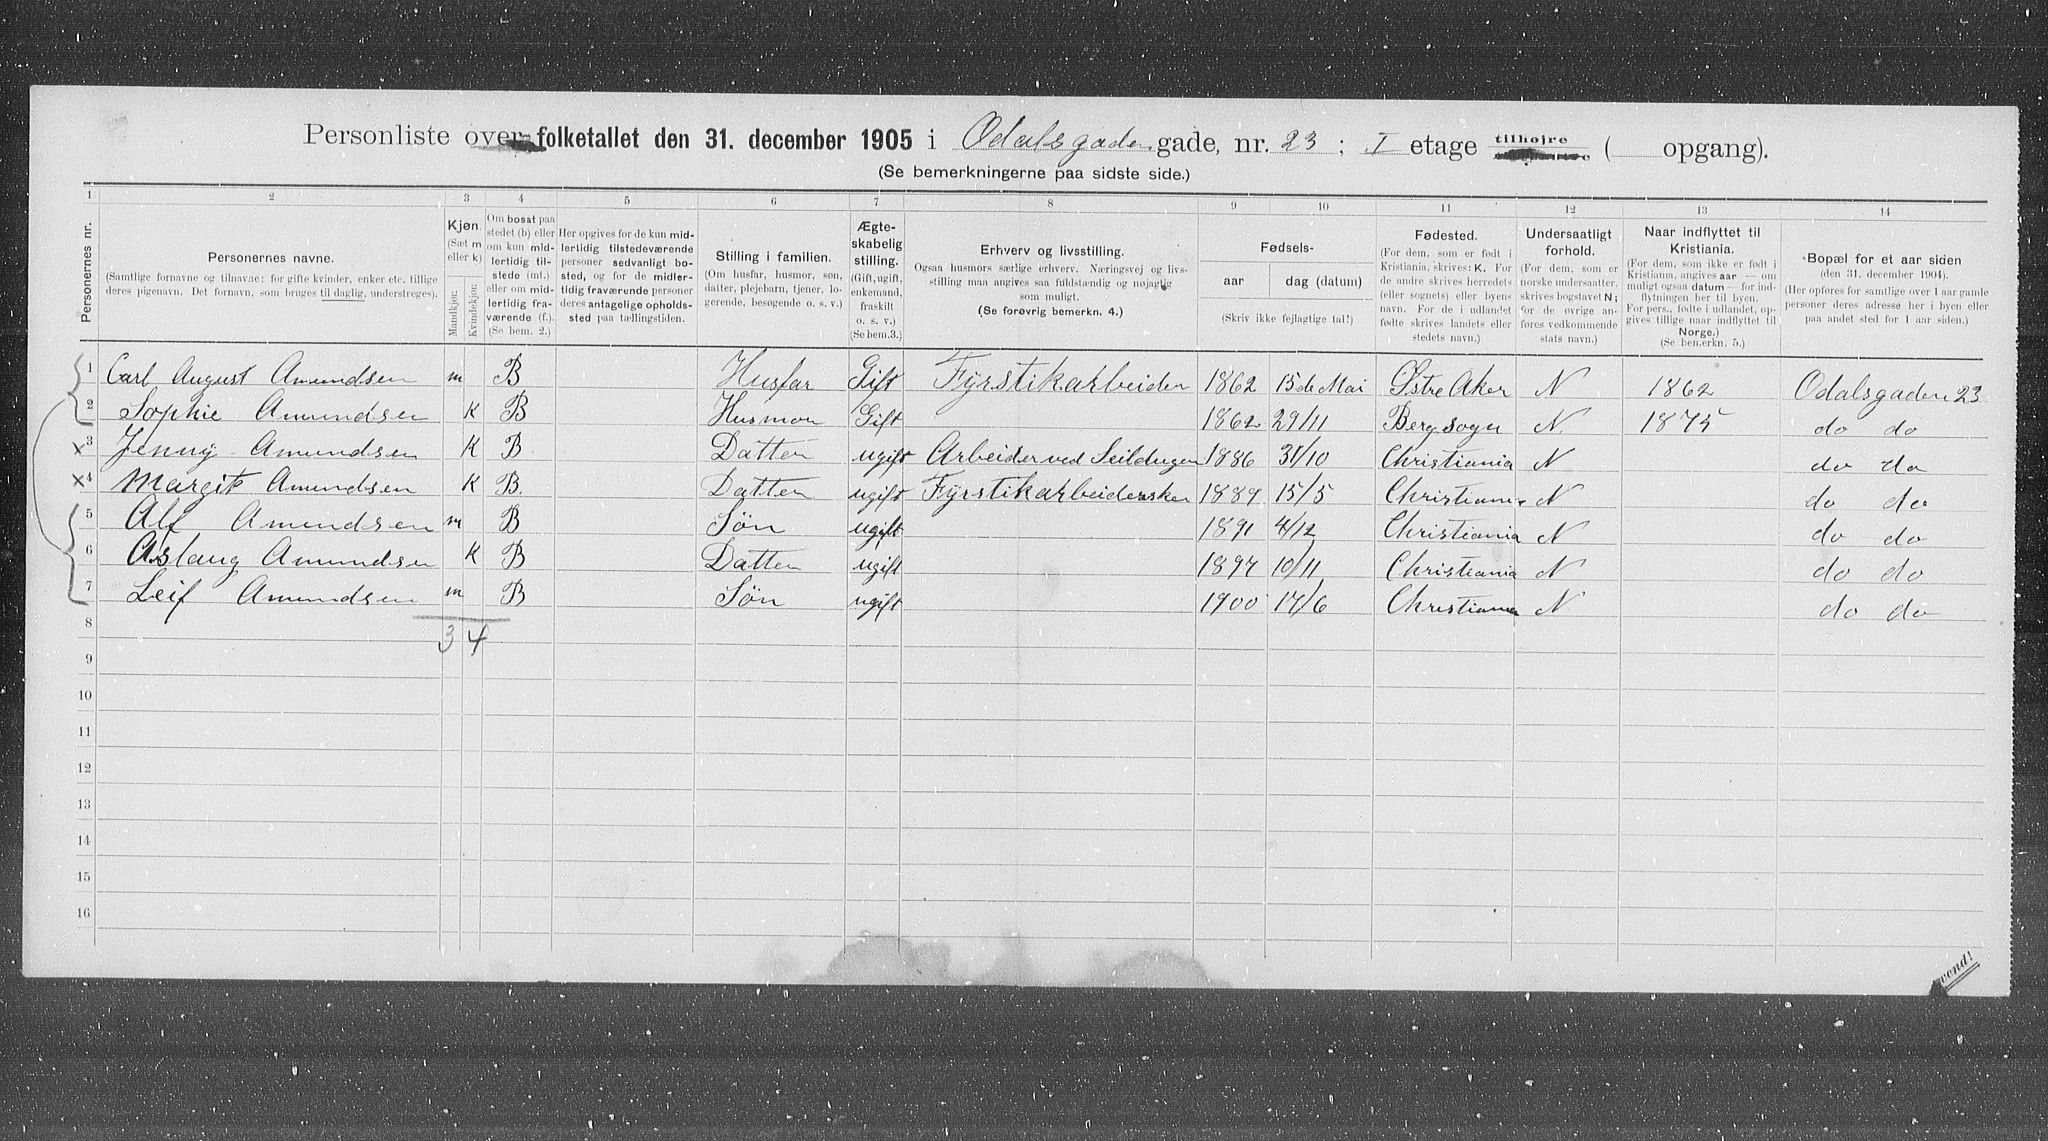 Personliste over folketallet den 31. december 1905 i Odalsgaden gade, nr. 23 ; I etage tilhøjre ( opgang).
(Se bemerkningerne paa sidste side.)
1 2 3 4 5 6 7 8 9 10 11 12 13 14
Personernes nr.
Personernes navne.
(Samtlige fornavne og tilnavne; for gifte kvinder, enker etc. tillige
deres pigenavn. Det fornavn, som bruges til daglig, understreges).
Kjøn.
(Sæt m
eller k)
Mandkjøn.
Kvindekjøn.
Om bosat paa
stedet (b) eller
om kun mid-
lertidig til-
stede (mt.)
eller om mid-
lertidig fra-
værende (f.).
(Se bem. 2.)
Her opgives for de kun mid-
lertidig tilstedeværende
personer sedvanligt bo-
sted, og for de midler-
tidig fraværende personer
deres antagelige opholds-
sted paa tællingstiden.
Stilling i familien.
(Om husfar, husmor, søn,
datter, plejebarn, tjener, lo-
gerende, besøgende o. s. v.)
Ægte-
skabelig
stilling.
(Gift, ugift,
enkemand,
fraskilt
o. s. v.)
(Se bem.3.)
Erhverv og livsstilling.
Ogsaa husmors særlige erhverv. Næringsvej og livs-
stilling maa angives saa fuldstændig og nøjagtig
som muligt.
(Se forøvrig bemerkn. 4.)
Fødsels-
aar dag (datum)
(Skriv ikke fejlagtige tal!)
Fødested.
(For dem, som er født i
Kristiania, skrives: K. For
de andre skrives herredets
(eller sognets) eller byens
navn. For de i udlandet
fødte skrives landets eller
stedets navn.)
Undersaatligt
forhold.
(For dem, som er
norske undersaatter,
skrives bogstavet N;
for de øvrige an-
føres vedkommende
stats navn.)
Naar indflyttet til
Kristiania.
(For dem, som ikke er født i
Kristiania, angives aar — om
muligt ogsaa datum — for ind-
flytningen her til byen.
For pers., fødte i udlandet, op-
gives tillige naar indflyttet til
Norge.)
(Se bemerkn. 5.)
Bopæl for et aar siden
(den 31. december 1904).
(Her opføres for samtlige over 1 aar gamle
personer deres adresse her i byen eller
paa andet sted for 1 aar siden.)
1 Carl August Amundsen m B Husfar Gift Fyrstikarbeider 1862 15de Mai Østre Aker N 1862 Odalsgaden 23
2 Sophie Amundsen K B Husmor Gift 1862 29/11 Berg sogn N. 1875 do do
x 3 Jenny Amundsen K B Datter ugift Arbeider ved Seildugen 1886 31/10 Christiania N do do
x 4 Margit Amundsen K B. Datter ugift Fyrstikarbeiderske 1889 15/5 Christiania N do do
5 Alf Amundsen m B Søn ugift 1891 4/12 Christiania N do do
6 Aslaug Amundsen K B Datter ugift 1897 10/11 Christiania N do do
7 Leif Amundsen m B Søn ugift 1900 17/6 Christiania N do do
8 3 4
9
10
11
12
13
14
15
16
vend!